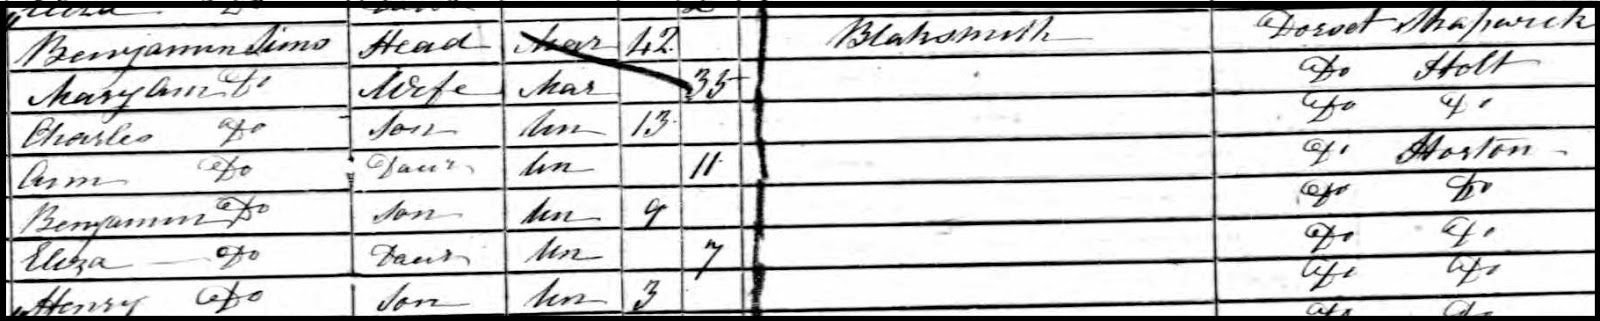 Eliza Do
Benjamin Sims Head Mar 42 Blaksmith Dorset Shapwick
Mary Ann Do Wife Mar 35 Do Holt
Charles Do Son Un 13 Do Do
Ann Do Daur Un 11 Do Horton
Benjamin Do Son Un 9 Do Do
Eliza Do Daur Un 7 Do Do
Henry Do Son Un 3 Do Do